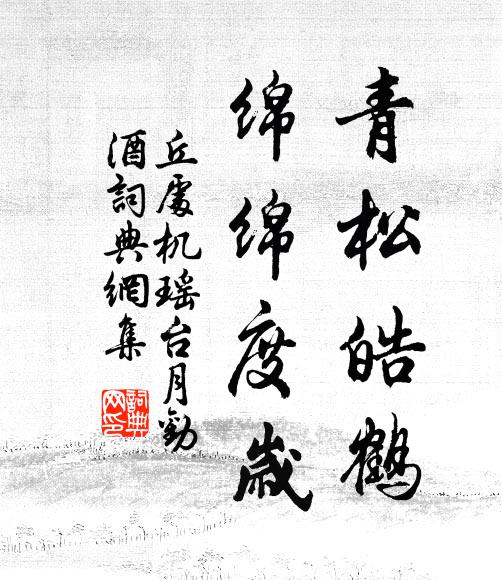 青松皓鹤
绵绵度岁
丘处机瑶台月劝
酒詞典網集
詞典
网印